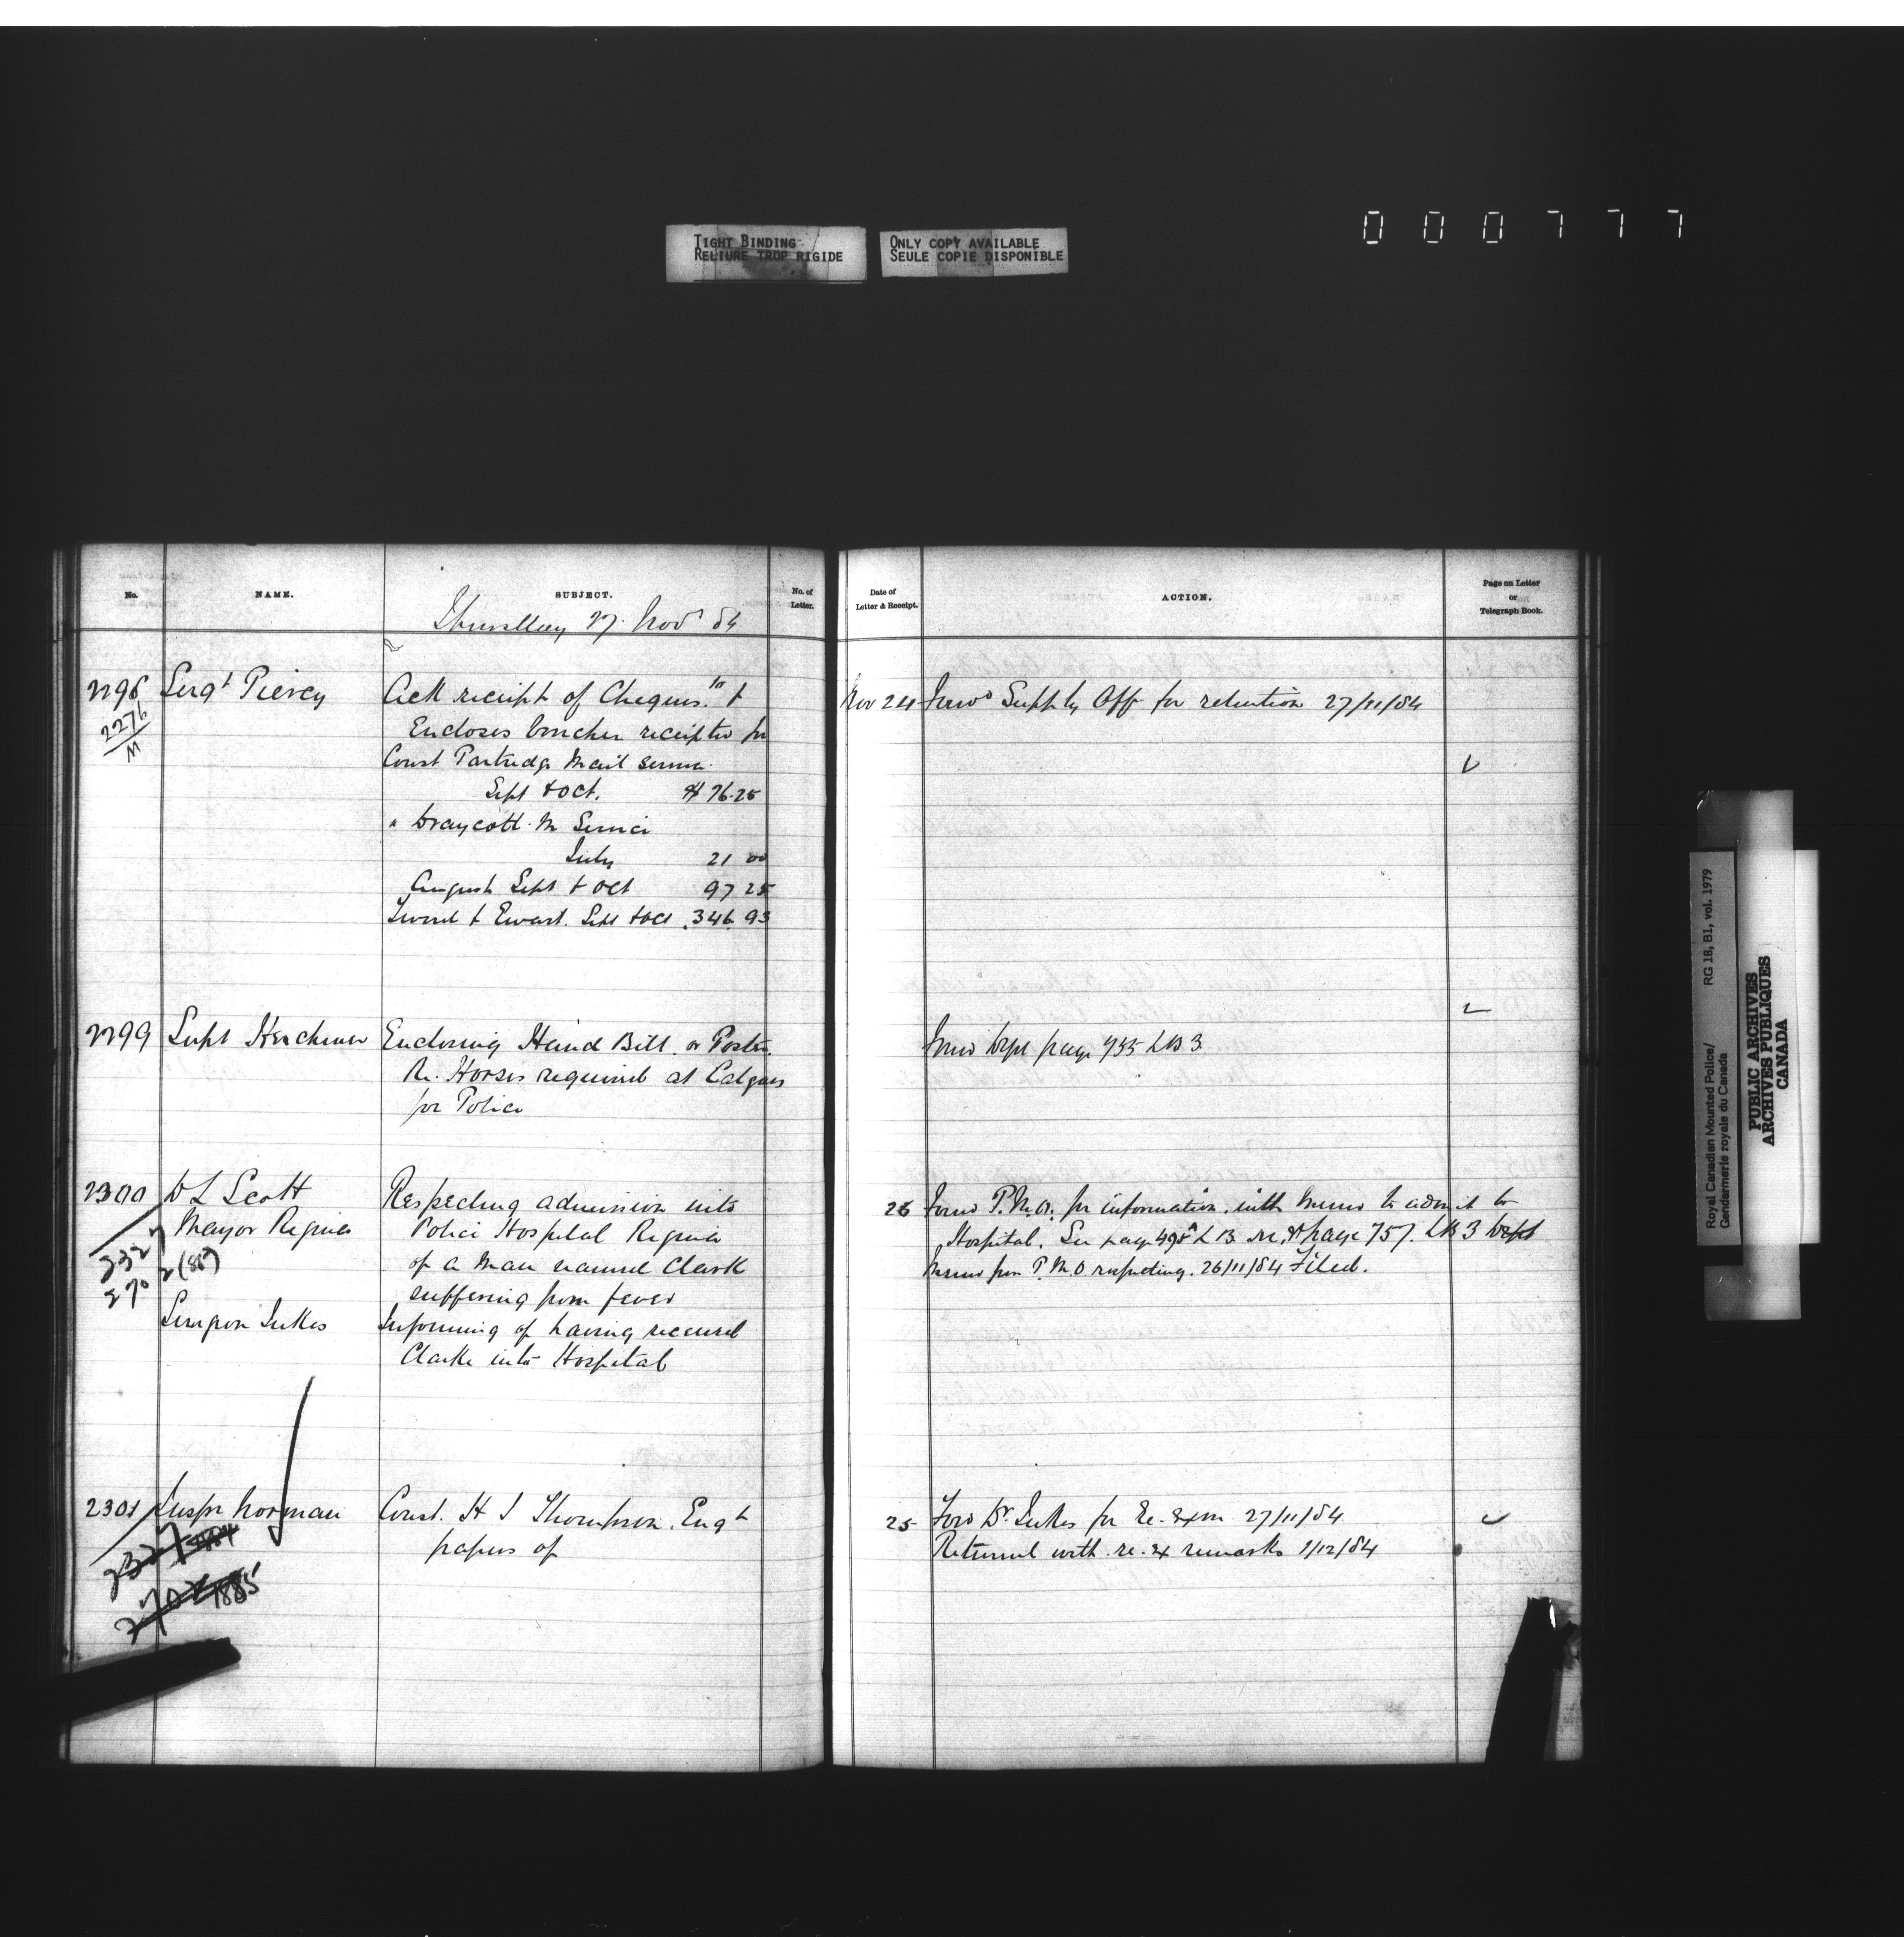 TIGHT BINDING
RELIURE TROP RIGIDE
ONLY COPY AVAILABLE
SEULE COPIE DISPONIBLE
000777
No.
NAME.
SUBJECT.
No. of
Letter.
Date of
Letter & Receipt.
ACTION.
Page on Letter
or
Telegraph Book.
Thursday 27 Novr 84
2298
2276
M
Sergt Piercy
Ack receipt of Cheques &
Encloses voucher receipted for
Const Partridge Mail service
Sept & Oct. $ 76.25
" Draycott M Service
July 21 00
August Sept & Oct 97 25
& Ewart. Sept & Oct 346.93
Nov 24
Forwd Supply Off for retention 27/11/84
2299
Supt Herchmer
Enclosing Hand Bill or Poster
Re. Horses required at Calgary
for Police
Forwd Dept page 735 LB 3
2300
D L Scott
Mayor Regina
Respecting admission into
Police Hospital Regina
of a man named Clark
suffering from fever
Surgeon Jukes
Informing of having received
Clarke into Hospital
26
Forwd P.M.O. for information with memo to admit to
Hospital. See page 495 LB & page 757. LB 3 Dept
Memo from P.M.O. respecting. 26/11/84 Filed.
2301
Inspr Norman
Const. H J Thompson. Engt
papers of
25
Forwd Dr. Jukes for Re-Exm 27/11/84
Returned with re-ex remarks 1/12/84
1885
Royal Canadian Mounted Police/
Gendarmerie royale du Canada
RG 18, B1, vol. 1979
PUBLIC ARCHIVES
ARCHIVES PUBLIQUES
CANADA